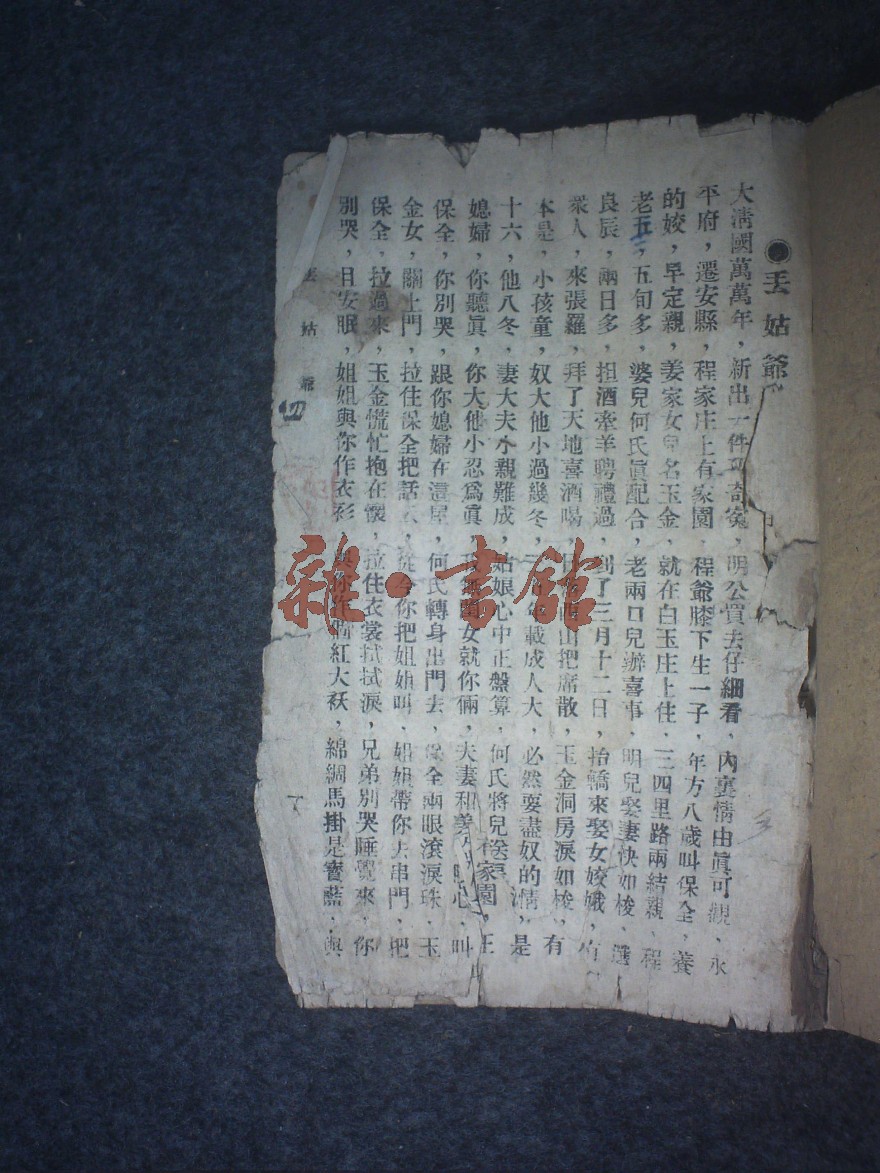 ●丢姑爺
大淸國萬萬年，新出一件奇寃，明公買去仔細看，內裏情由眞可觀，永
平府，遷安縣，程家庄上有家園，程爺膝下生一子，年方八歲叫保全，養
的姣，早定親，姜家女兒名玉金，就在白玉庄上住，三四里路兩結親，程
老五，五旬多，婆兒何氏眞配合，老兩口兒辦喜事，明兒娶妻快如梭，選
良辰，兩日多，担酒牽羊聘禮過，到了三月十二日，抬轎來娶女姣娥，有
衆人，來張羅，拜了天地喜酒喝，山把席散，玉金洞房淚如梭，有
本是，小孩童，奴大他小過幾冬，年載成人大，必然耍盡奴的情，是
十六，他八冬，妻大夫小親難成，姑娘心中正盤算，何氏將兒送家園，王
媳婦，你聽眞，你大他小忍爲眞，女就你倆，夫妻和美心，叫
保全，你別哭，跟你媳婦在這屋，何氏轉身出門去，保全兩眼滾淚珠，玉
金女，關上門，拉住保全把話，從今你把姐姐叫，姐姐帶你去串門，把
保全，拉過來，玉金慌忙抱在懷，拉住衣裳拭拭淚，兄弟別哭睡覺來，你
別哭，且安眠，姐姐與你作衣衫，與你作紅大袄，綿綢馬掛是寶藍，與
丢姑爺
四
雜·書館